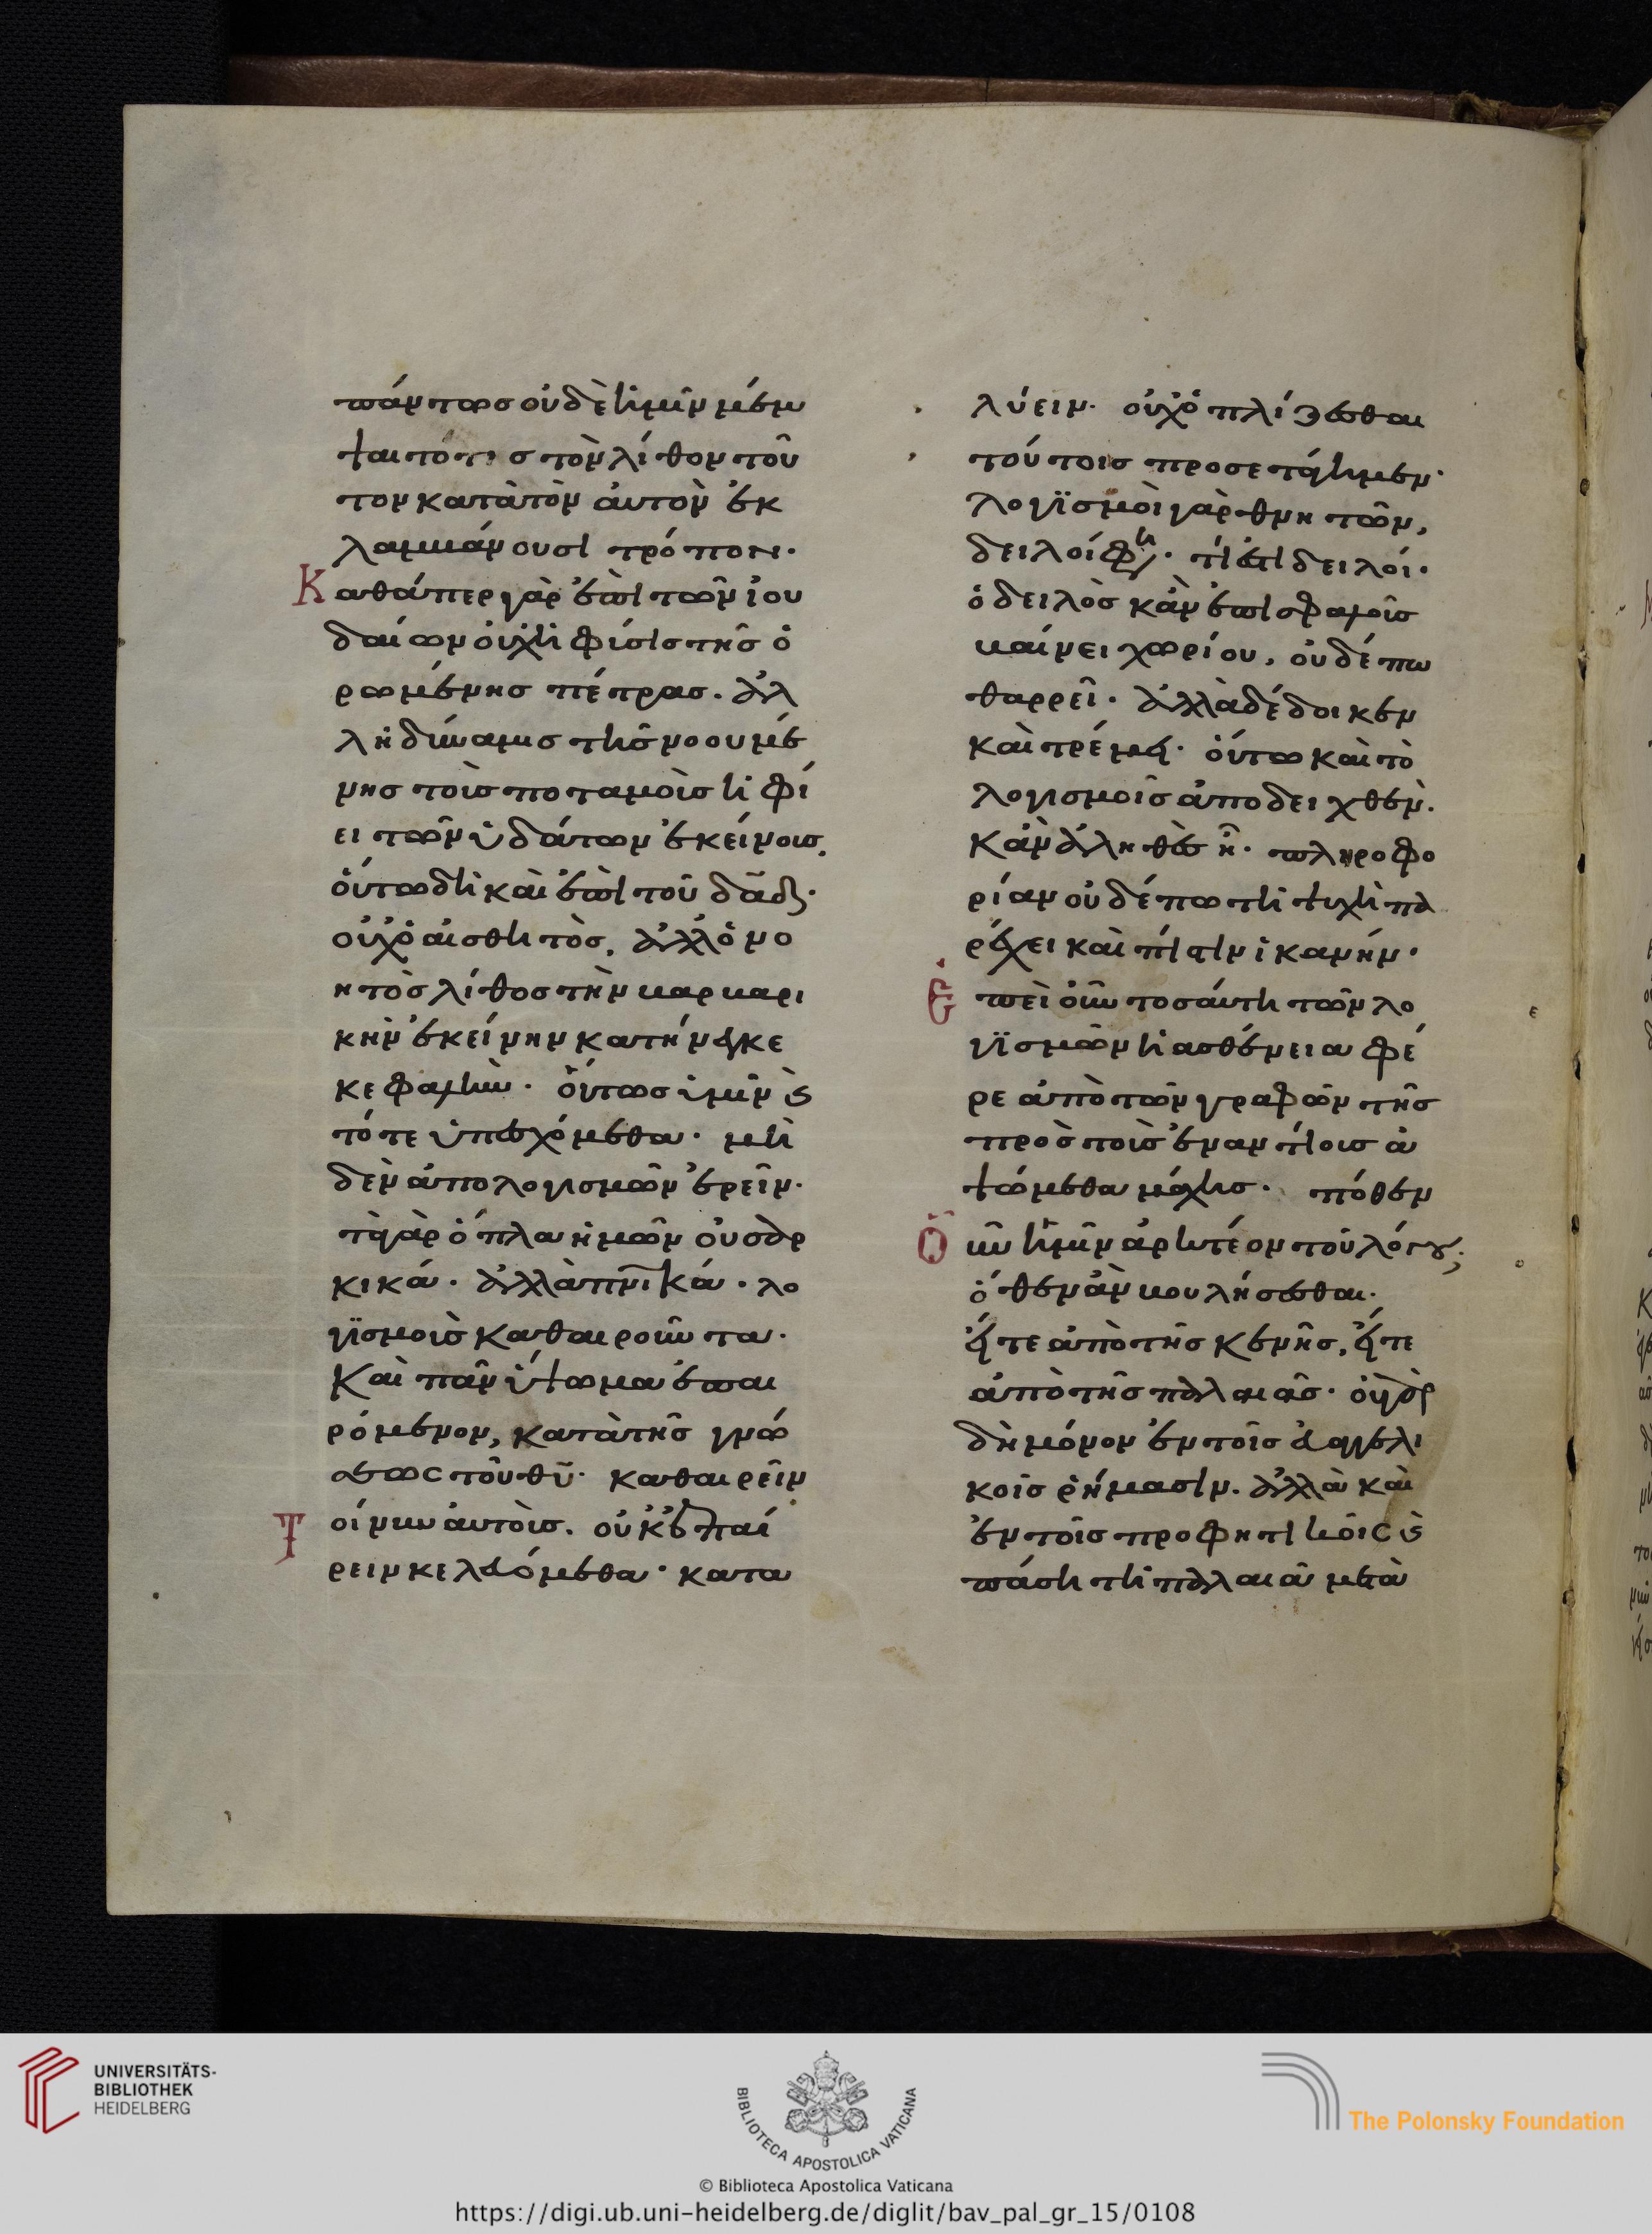 πάντως οὐδὲ ἡμῖν μέμ
ψαιτό τις τὸν λίθον τοῦ
τον κατὰ τὸν αὐτὸν ἐκ
λαμβάνουσι τρόπον.
Καθάπερ γὰρ ἐπὶ τῶν ἰου
δαίων οὐχ ἡ φύσις τῆς ὁ
ρωμένης πέτρας. ἀλ
λ ἡ δύναμις τῆς νοουμέ
νης τοὺς ποταμοὺς ἠφί
ει τῶν ὑδάτων ἐκείνους,
οὕτω δὴ καὶ ἐπὶ τοῦ δαδ·
οὐχ ὁ αἰσθητὸς, ἀλλ ὁ νο
ητὸς λίθος τὴν βαρβαρι
κὴν ἐκείνην κατήνεγκε
κεφαλήν. οὕτως ὑμῖν ϗ
τότε ὑπεσχόμεθα· μη
δὲν ἀπὸ λογισμῶν ἐρεῖν.
τὰ γὰρ ὅπλα ἡμῶν οὐ σαρ
κικά. ἀλλὰ πνικά. λο
γϊσμοὺς καθαιροῦντα.
Καὶ πᾶν ὕψωμα ἐπαι
ρόμενον, κατὰ τῆς γνώ
σεως τοῦ θυ· καθαιρεῖν
Τοίνυν αὐτοὺς. οὐκ ἐπαί
ρειν κελευόμεθα· κατα
λύειν· οὐχ ὁπλίζεσθαι
τούτοις προσετάγημεν·
λογϊσμοὶ γὰρ θνητῶν,
δειλοί φη. τί ἐστι δειλοί.
ὁ δειλὸς κἂν ἐπ ἀσφαλοῦς
βαίνει χωρίου, οὐδέπω
θαρρεῖ. ἀλλὰ δέδοικεν
καὶ τρέμει· οὕτω καὶ τὸ
λογισμοῖς ἀποδειχθέν.
Κἂν ἀληθὲς ἦ. πληροφο
ρίαν οὐδέπω τῆ ψυχῆ πα
ρέχει καὶ πίστιν ἱκανήν.
Ἐπεὶ οὖν τοσαύτη τῶν λο
γϊσμῶν ἡ ασθένεια φέ
ρε ἀπὸ τῶν γραφῶν τῆς
πρὸς τοὺς ἐναντίους ἁ
ψώμεθα μάχης. πόθεν
Οὖν ἡμῖν ἀρκτέον τοῦ λόγου;
ὅθεν ἂν βουλήσεσθαι.
εἴτε ἀπὸ τῆς Καινῆς, εἴτε
ἀπὸ τῆς παλαιᾶς. οὐ γὰρ
δὴ μόνον ἐν τοῖς εὐαγγελι
κοῖς ῥήμασιν. ἀλλὰ καὶ
ἐν τοῖς προφητικοῖς ϗ
πάση τῆ παλαιᾶ μετὰ
UNIVERSITÄTS-
BIBLIOTHEK
HEIDELBERG
BIBLIOTECA APOSTOLICA VATICANA
The Polonsky Foundation
© Biblioteca Apostolica Vaticana
https://digi.ub.uni-heidelberg.de/diglit/bav_pal_gr_15/0108